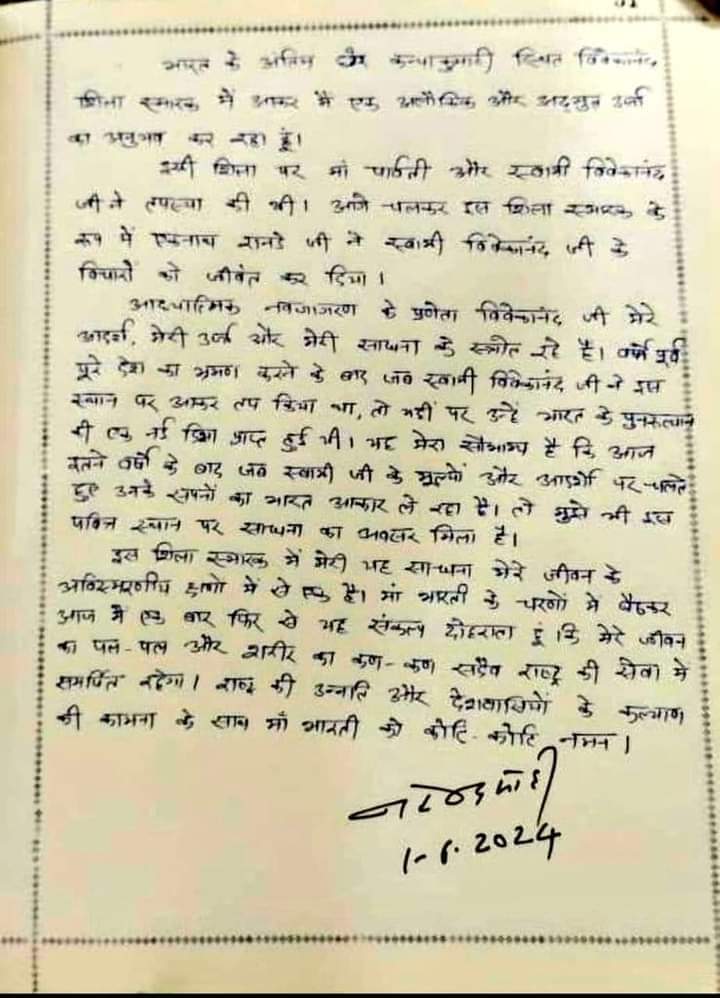 भारत के अंतिम छोर कन्याकुमारी स्थित विवेकानंद
शिला स्मारक में आकर मैं एक अलौकिक और अद्भुत उर्जा
का अनुभव कर रहा हूं।
इसी शिला पर मां पार्वती और स्वामी विवेकानंद
जी ने तपस्या की थी। आगे चलकर इस शिला स्मारक के
रूप में एकनाथ रानडे जी ने स्वामी विवेकानंद जी के
विचारों को जीवंत कर दिया।
आध्यात्मिक नवजागरण के प्रणेता विवेकानंद जी मेरे
आदर्श, मेरी उर्जा और मेरी साधना के स्त्रोत रहे है। वर्षों पूर्व
पूरे देश का भ्रमण करने के बाद जब स्वामी विवेकानंद जी ने इस
स्थान पर आकर तप किया था, तो यहीं पर उन्हें भारत के पुनरुत्थान
की एक नई दिशा प्राप्त हुई थी। यह मेरा सौभाग्य है कि आज
इतने वर्षों के बाद जब स्वामी जी के मूल्यों और आदर्शों पर चलते
हुए उनके सपनों का भारत आकार ले रहा है। तो मुझे भी इस
पवित्र स्थान पर साधना का अवसर मिला है।
इस शिला स्मारक में मेरी यह साधना मेरे जीवन के
अविस्मरणीय क्षणों में से एक है। मां भारती के चरणों में बैठकर
आज मैं एक बार फिर से यह संकल्प दोहराता हूं कि मेरे जीवन
का पल-पल और शरीर का कण-कण सदैव राष्ट्र की सेवा में
समर्पित रहेगा। राष्ट्र की उन्नति और देशवासियों के कल्याण
की कामना के साथ मां भारती को कोटि-कोटि नमन।
नरेन्द्र मोदी
1-6.2024